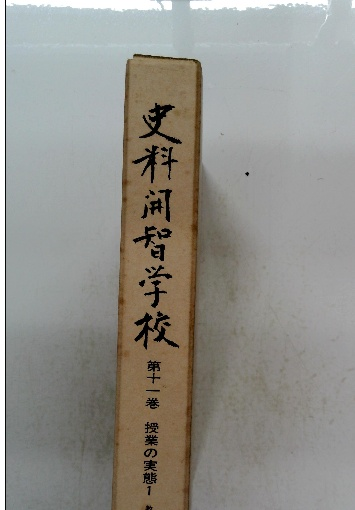 史料開智学校
第十一巻 授業の実態1